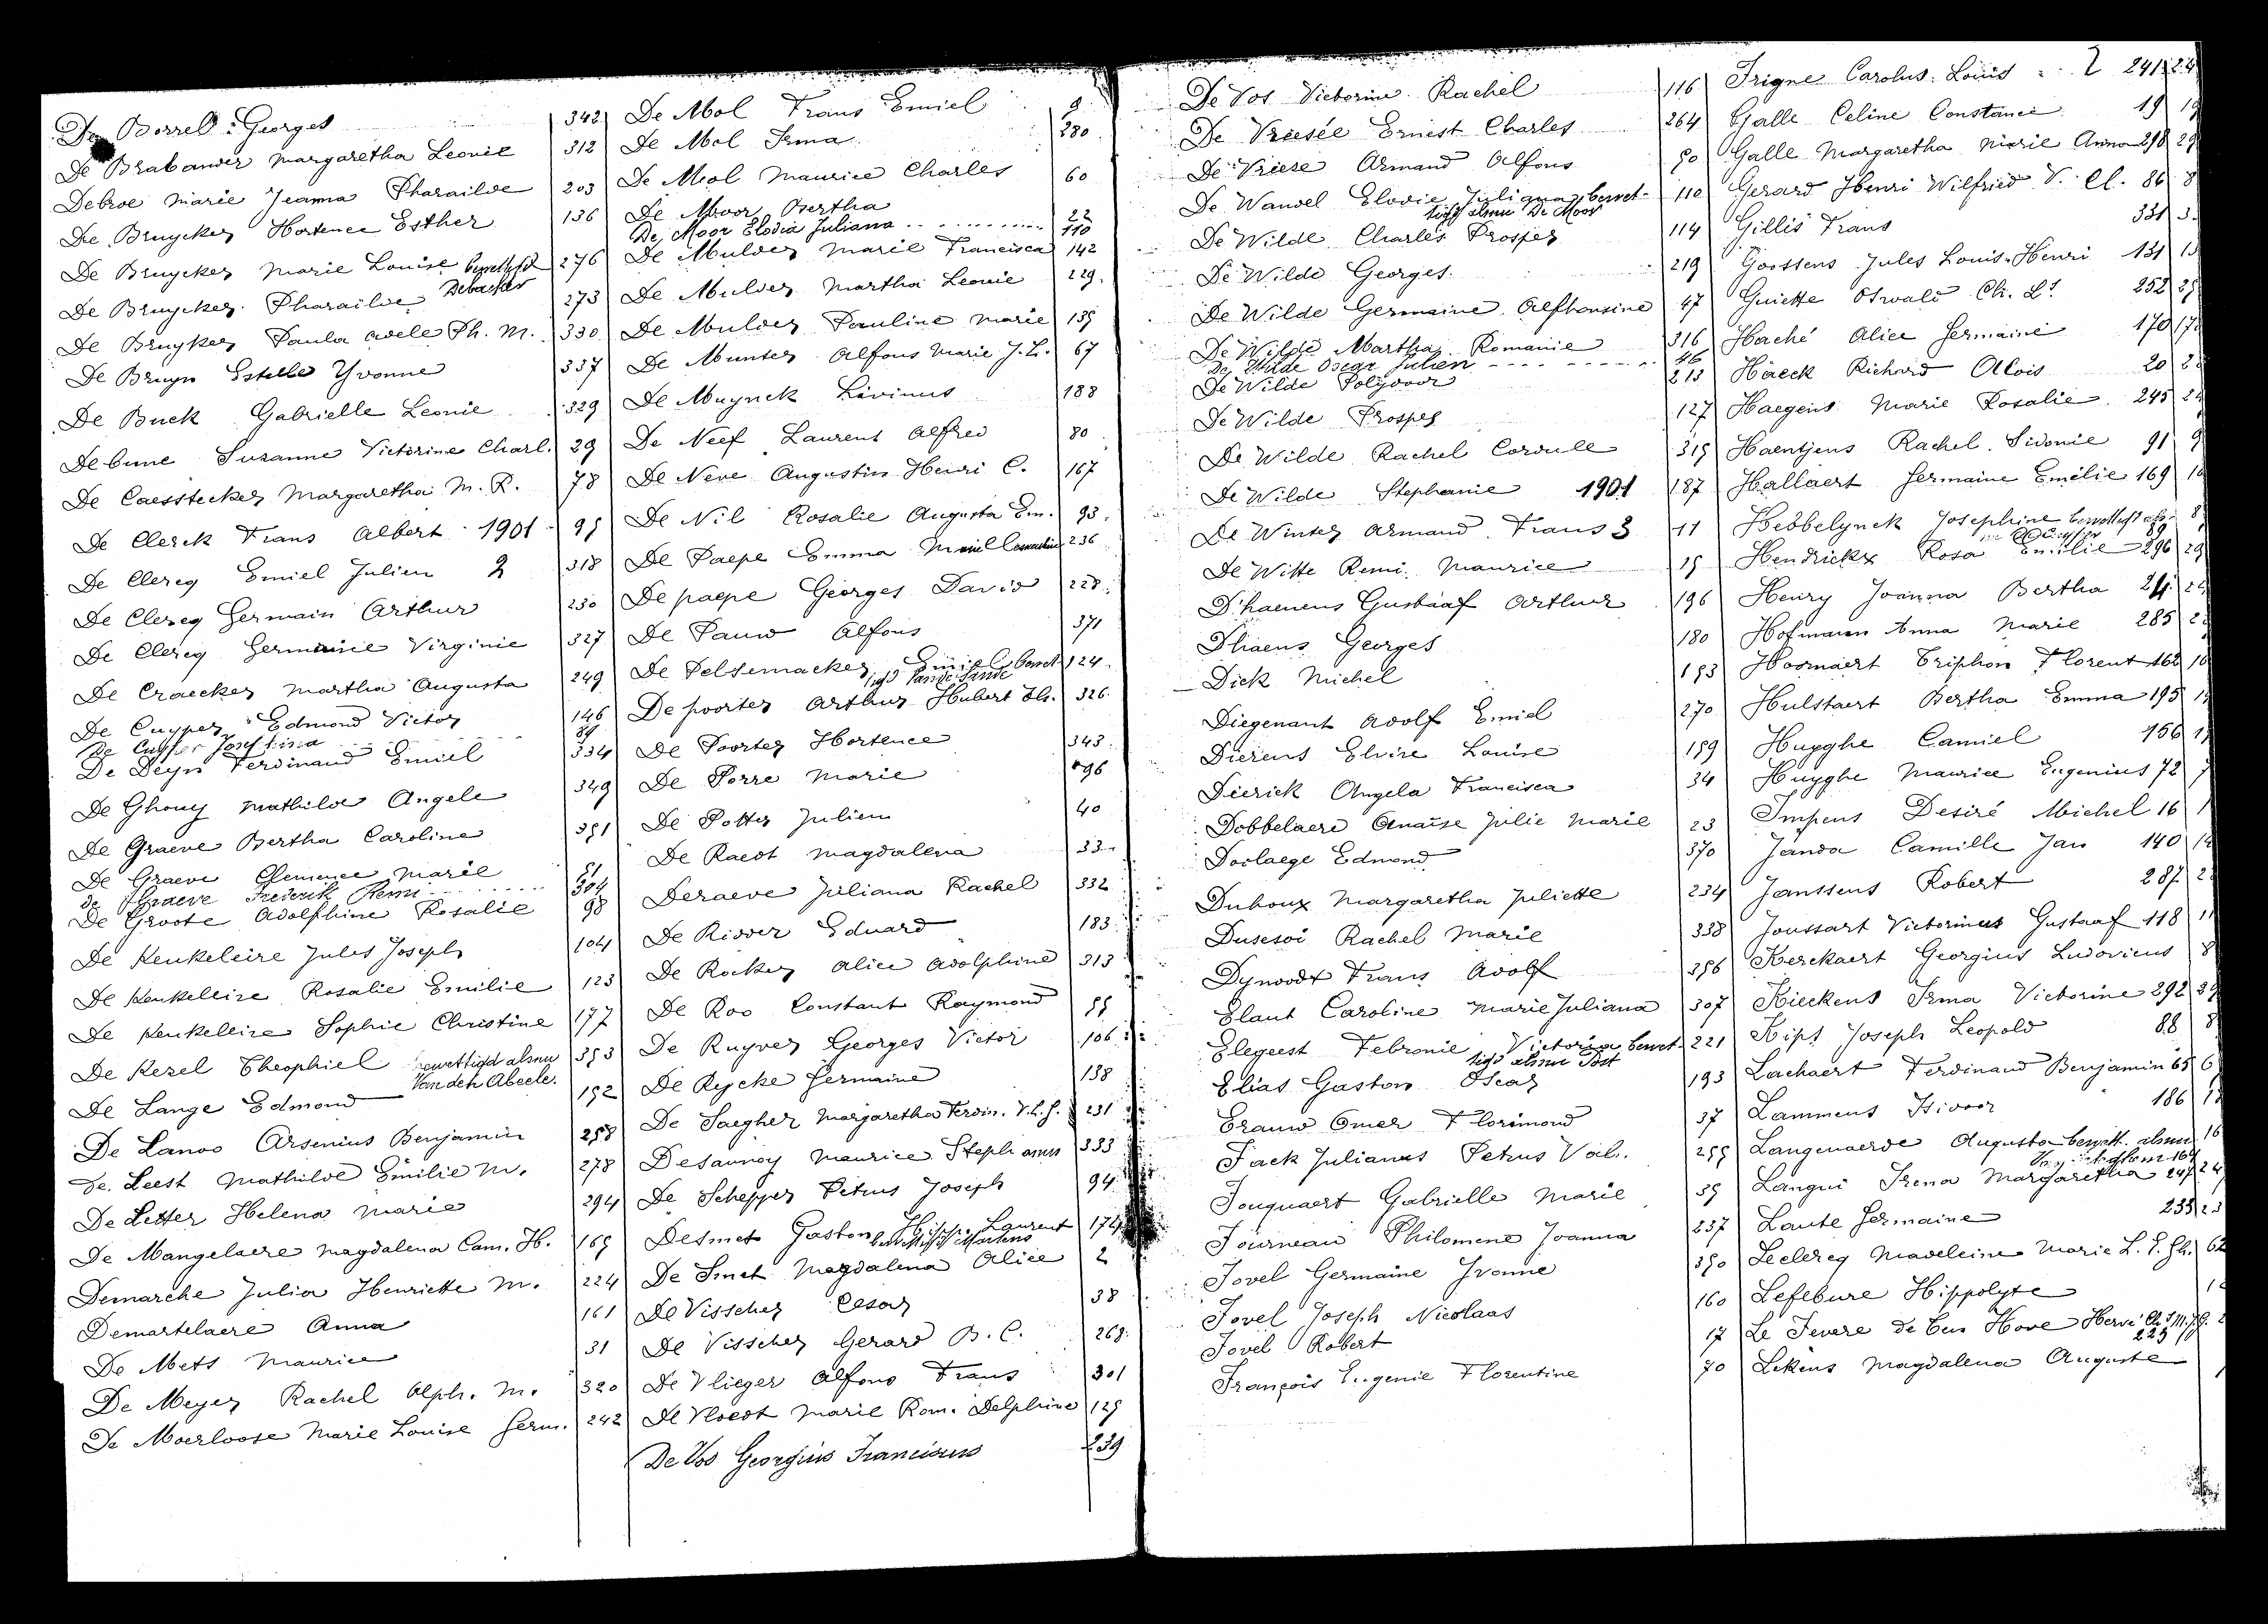 De Borrel Georges 342
De Brabander Margaretha Leonie 312
Debroe Marie Jeanna Pharailde 203
De Bruycker Hortence Esther 136
De Bruycker Marie Louise bewettigd 276
Debacker
De Bruycker Pharailde 273
De Bruyker Paula Adele Ph. M. 330
De Bruyn Estelle Yvonne 337
De Buck Gabrielle Leonie 329
Debune Suzanne Victorine Charl. 29
De Caesstecker Margaretha M. R. 78
De Clerck Frans Albert 1901 95
De Clercq Emiel Julien 2 318
De Clercq Germain Arthur 230
De Clercq Germaine Virginie 327
De Craecker Martha Augusta 249
De Cuyper Edmond Victor 146
De Cuyper Josephina 89
De Deyn Ferdinand Emiel 334
De Ghouy Mathilde Angele 349
De Graeve Bertha Caroline 351
De Graeve Clemence Marie 51
de Graeve Frederik Remi 304
De Groote Adolphine Rosalie 98
De Keukeleire Jules Joseph 104
De Keukeleire Rosalie Emilie 123
De Keukeleire Sophie Christine 177
De Kezel Theophiel gewettigd alsnu 353
Van den Abeele.
De Lange Edmond 152
De Lanoo Arsenius Benjamin 258
De Leest Mathilde Emilie M. 278
De Letter Helena Marie 294
De Mangelaere Magdalena Cam. H. 165
Demarche Julia Henriette M. 224
Demartelaere Anna 161
De Mets Maurice 31
De Meyer Rachel Alph. M. 320
De Moerloose Marie Louise Germ. 242
De Mol Frans Emiel 9
De Mol Irma 280
De Mol Maurice Charles 60
De Moor Bertha 22
De Moor Elodia Juliana 110
De Mulder Marie Francisca 142
De Mulder Martha Leonie 229
De Mulder Pauline Marie 135
De Munter Alfons Marie J. L. 67
De Muynck Livinus 188
De Neef Laurent Alfred 80
De Neve Augustin Henri C. 167
De Nil Rosalie Augusta Em. 93
De Paepe Emma Marie 236
De paepe Georges David 228
De Pauw Alfons 371
De Pelsemacker Emiel bewet- 124
tigd Vande Sande
De poorter Arthur Hubert 326
De Poorter Hortence 343
De Porre Marie 96
De Potter Julien 40
De Raedt Magdalena 33
Deraeve Juliana Rachel 332
De Ridder Eduard 183
De Rocker Alice Adolphine 313
De Roo Constant Raymond 55
De Ruyver Georges Victor 106
De Rycke Germaine 138
De Saegher Margaretha Ferdin. V. L. G. 231
Desaunoy Maurice Stephanus 333
De Schepper Petrus Joseph 94
Desmet Gaston Laurent 174
bewettigd Martens
De Smet Magdalena Alice 2
De Visscher Cesar 38
De Visscher Gerard B. C. 268
De Vlieger Alfons Frans 301
De Vloedt Marie Rom. Delphine 125
De Vos Georgius Franciscus 239
De Vos Victorine Rachel 116
De Vreesée Ernest Charles 264
De Vriese Armand Alfons 50
De Wandel Elodie Juliana bewet- 110
tigd alsnu De Moor
De Wilde Charles Prosper 114
De Wilde Georges 219
De Wilde Germaine Alphonsine 47
De Wilde Martha Romanie 316
De Wilde Oscar Julien 46
De Wilde Polydoor 213
De Wilde Prosper 127
De Wilde Rachel Cordule 315
De Wilde Stephanie 1901 187
De Winter Armand Frans 3 11
De Witte Remi Maurice 15
D'haenens Gustaaf Arthur 196
Dhaens Georges 180
Dick Michel 153
Diegenant Adolf Emiel 270
Dierens Elvire Louise 159
Dierick Angela Francisca 34
Dobbelaere Anaïse Julie Marie 23
Doolaege Edmond 370
Duhoux Margaretha Juliette 234
Dusesoi Rachel Marie 338
Dynoodt Frans Adolf 356
Elaut Caroline Marie Juliana 307
Elegeest Febronie Victoria bewet- 221
tigd alsnu Post
Elias Gaston Oscar 193
Erauw Omer Florimond 37
Fack Julianus Petrus Val. 255
Fouquaert Gabrielle Marie 35
Fourneau Philomene Joanna 237
Fovel Germaine Yvonne 350
Fovel Joseph Nicolaas 160
Fovel Robert 17
François Eugenie Florentine 70
Frigne Carolus Louis 241
Galle Celine Constance 19
Galle Margaretha Marie Anna 298
Gerard Henri Wilfried V. Cl. 86
Gillis Frans 331
Goossens Jules Louis Henri 131
Guiette Oswald Ch. Ls. 252
Haché Alice Germaine 170
Haeck Richard Alois 20
Haegens Marie Rosalie 245
Haentjens Rachel Sidonie 91
Hallaert Germaine Emélie 169
Hebbelynck Josephine bewettigd als-
nu De Cuyper 89
Hendrickx Rosa Emilie 296
Henry Joanna Bertha 24
Hofmann Anna Marie 285
Hoornaert Triphon Florent 162
Hulstaert Bertha Emma 195
Huyghe Camiel 156
Huyghe Maurice Eugenius 72
Impens Desiré Michel 16
Janda Camille Jan 140
Janssens Robert 287
Joussart Victorinus Gustaaf 118
Kerckaert Georgius Ludovicus 8
Kieckens Irma Victorine 292
Kips Joseph Leopold 88
Lachaert Ferdinand Benjamin 65
Lammens Isidoor 186
Langenaerde Augusta bewett. alsnu
Langui Irena Margaretha 247
Laute Germaine 233
Leclercq Madeleine Marie L. G. Gh. 62
Lefebure Hippolyte
Le Fevere de Ten Hove Hervé 225
Lekens Magdalena Auguste